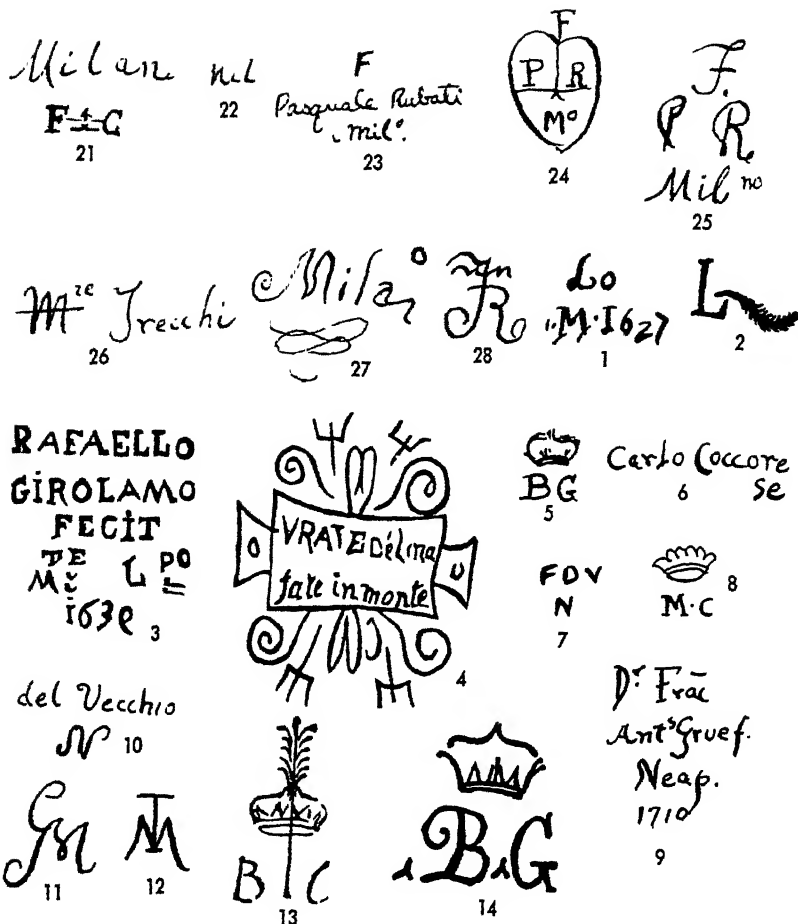 Milan
F C
21
nil
22
F
Pasquale Rubati
mil°.
23
F
P R
M°
24
F.
P R
Mil no
25
re Trecchi
26
Milan°
27
28
Lo
M·1627
1
L
2
RAFAELLO
GIROLAMO
FECIT
TE
M L PO
163
3
VRATE Délina
fate in monte
4
BG
5
Carlo Coccore
se
6
FDV
N
7
M·C
8
Dr. Frac
Ants Gruef.
Neap.
1710
9
del Vecchio
N
10
GM
11
TM
12
B C
13
B G
14